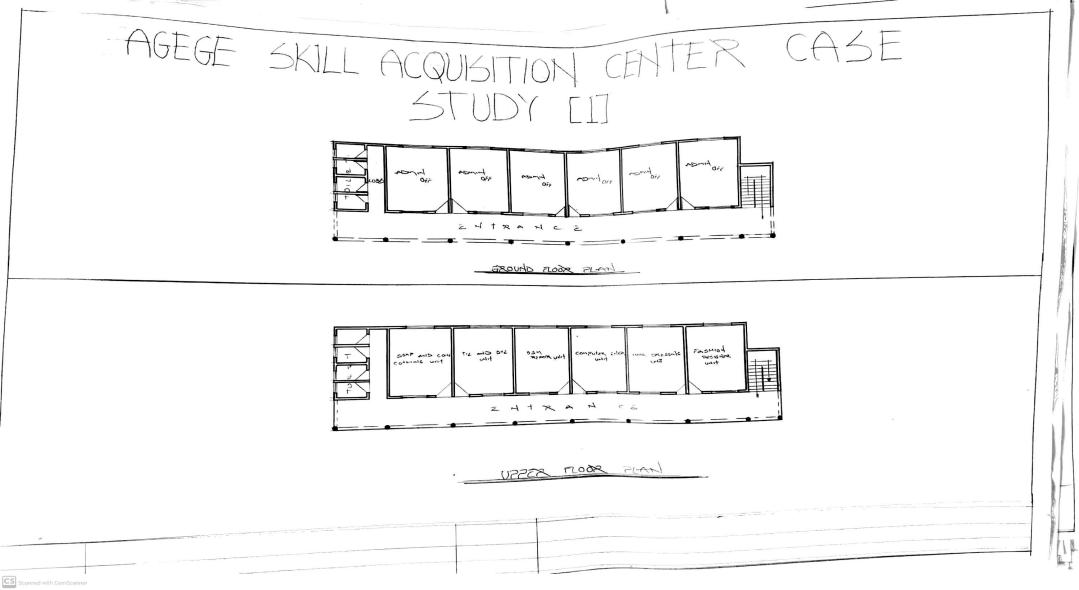 AGEGE SKILL ACQUISITION CENTER CASE
STUDY [1]
ADMIN
OFF
ADMIN
OFF
ADMIN
OFF
ADMIN OFF
ADMIN
OFF
ADMIN
OFF
ENTRANCE
GROUND FLOOR PLAN
SOAP AND
unit
TIE AND DYE
unit
GSM
REPAIR unit
COMPUTER
unit
unit
FASHION
DESIGNER
unit
ENTRANCE
UPPER FLOOR PLAN
CS Scanned with CamScanner